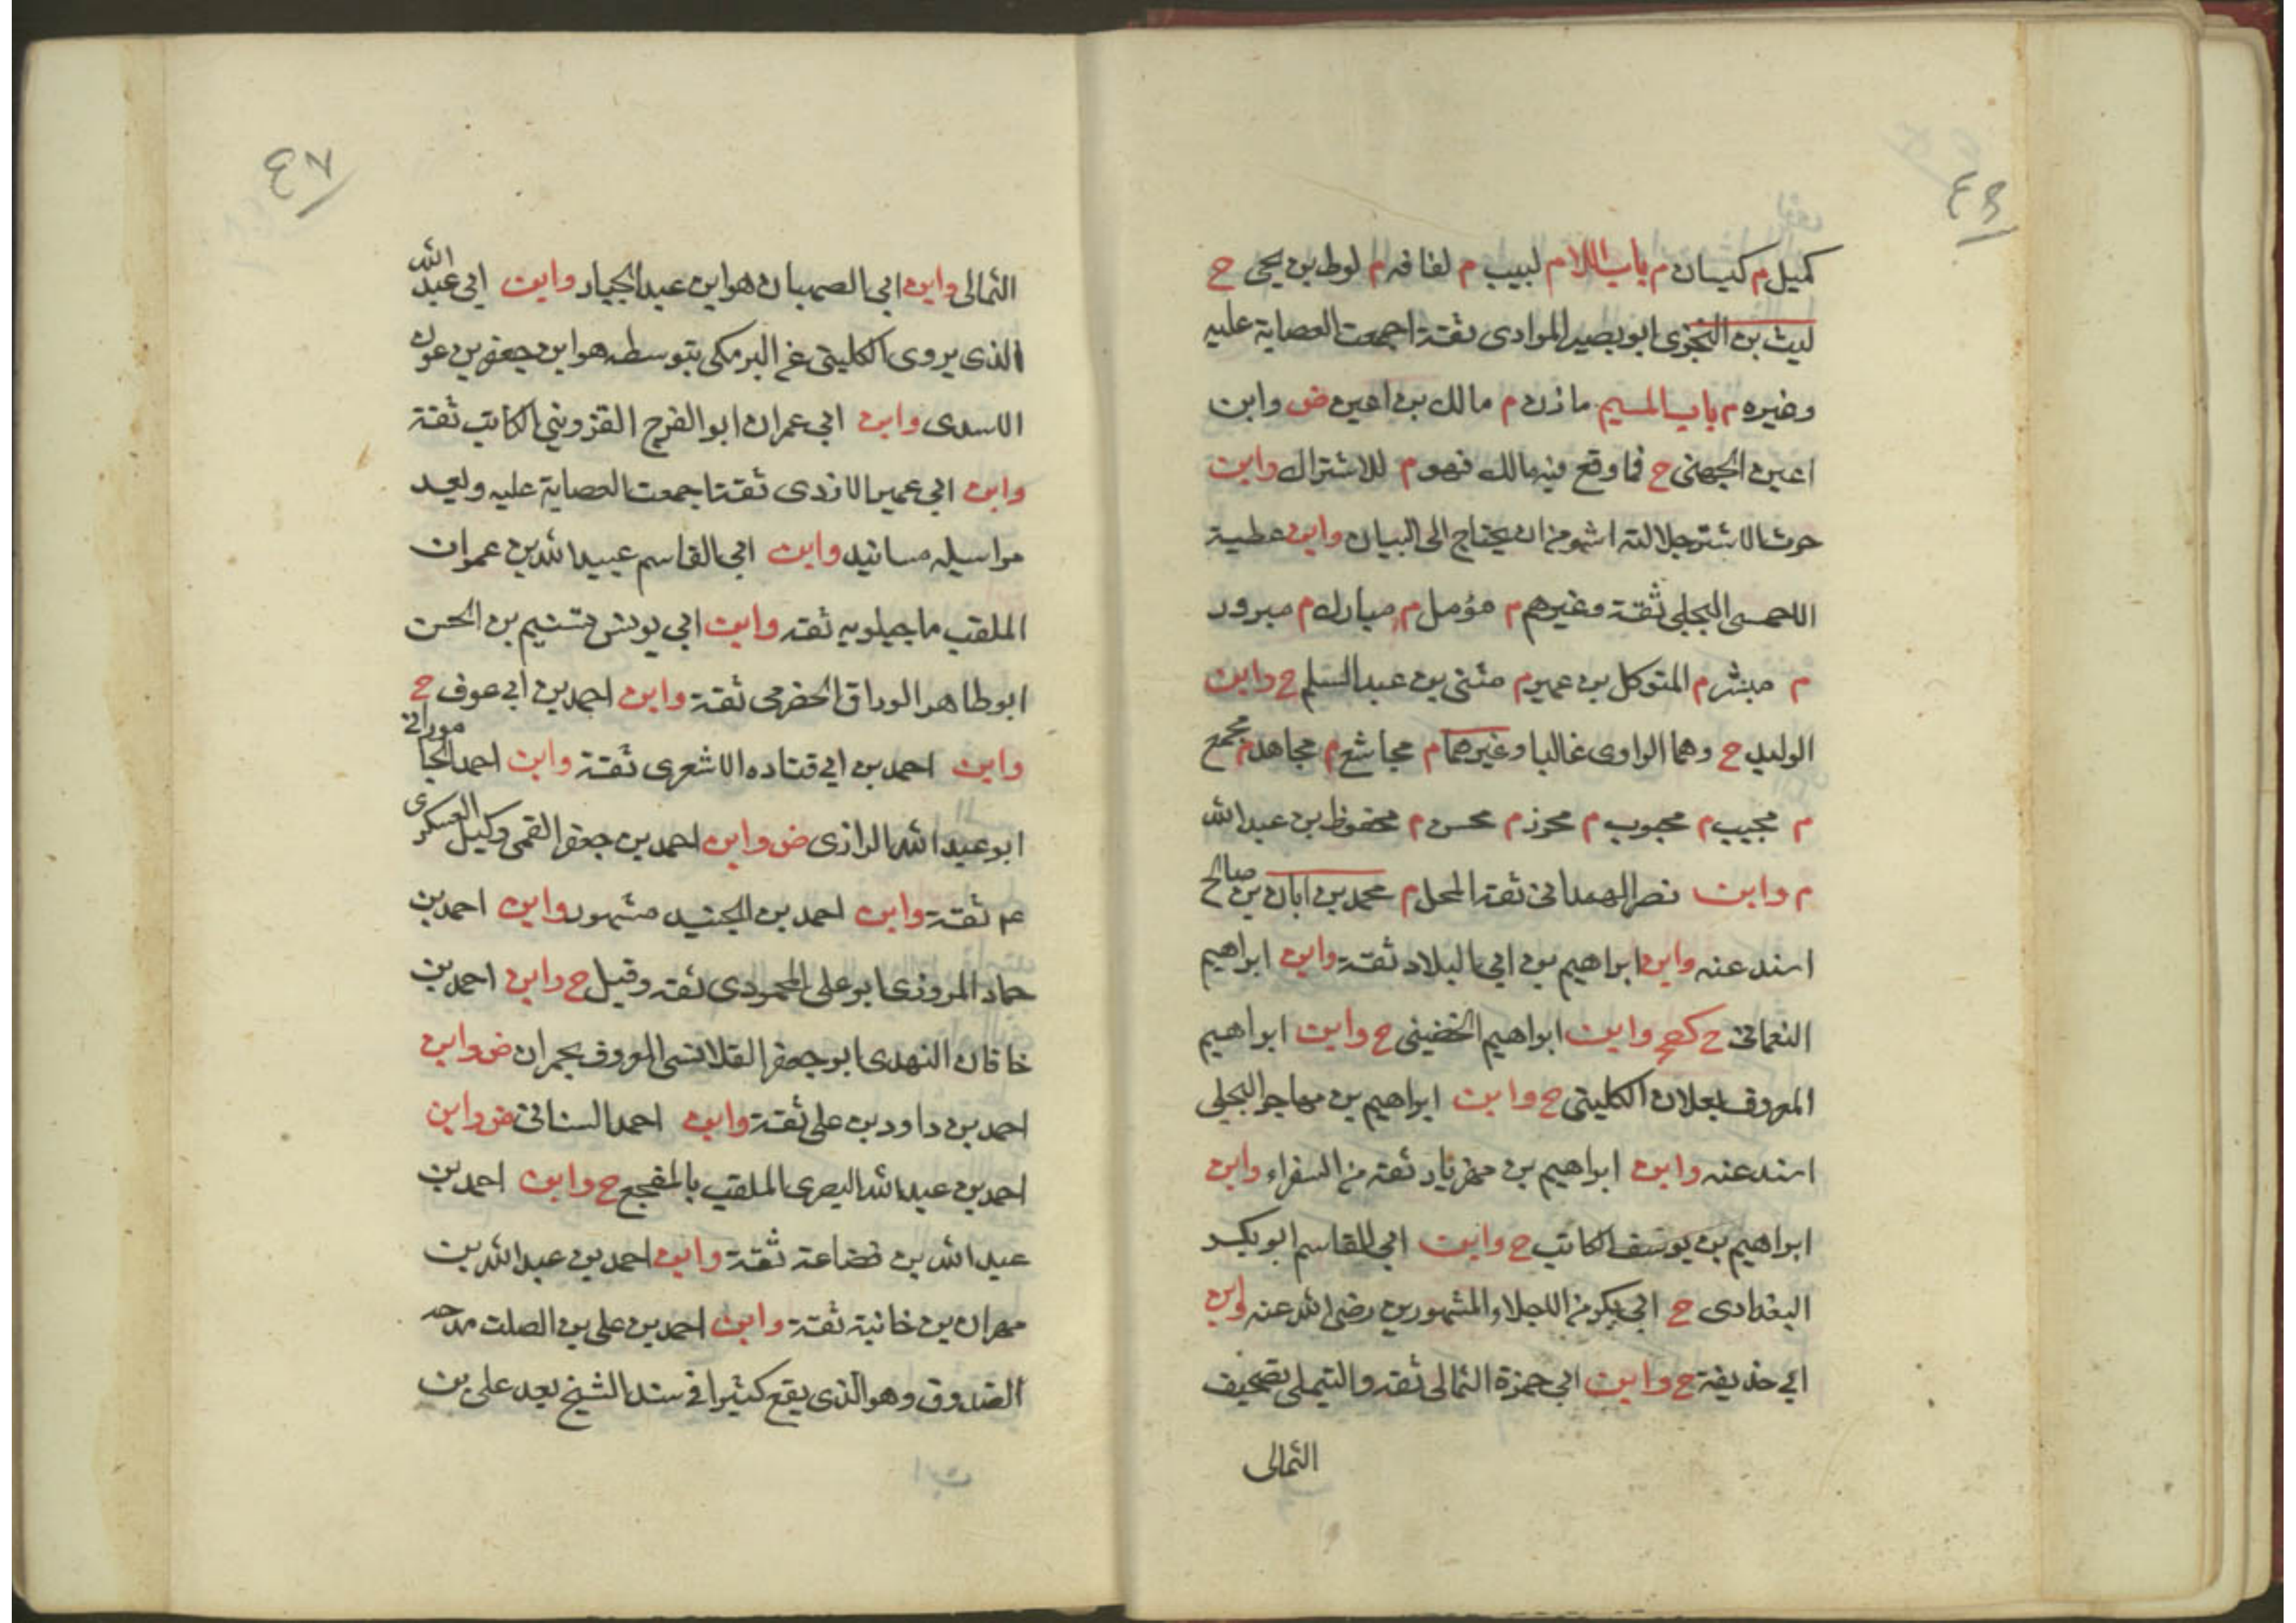 ٤٦
كميل م كيسان م باب اللام لبيب م لفافه م لوط بن يحيى ح
ليث بن البختري ابو بصير المرادى ثقة اجمعت العصابة عليه
وغيره م باب الميم مازن م مالك بن اعين ض وابن
اعين الجهنى ح فما وقع فيه مالك فهو م للاشتراك وابن
حرث الاشتر جلالته اشهر من ان يحتاج الى البيان وابن عطية
الاحمسى البجلى ثقة وغيرهم م مؤمل م مبارك م مبرور
م مبشر م المتوكل بن عمير م مثنى بن عبد السلم ح وابن
الوليد ح وهما الراوى غالبا وغيرهما م مجاشع م مجاهد م مجمع
م مجيب م محبوب م محرز م محسن م محفوظ بن عبد الله
م وابن نصر الهمدانى ثقة المحل م محمد بن ابان بن صالح
اسند عنه وابن ابراهيم بن ابى البلاد ثقة وابن ابراهيم
النعمانى ح كصح وابن ابراهيم الحضينى ح وابن ابراهيم
المعروف بعلان الكلينى ح وابن ابراهيم بن مهاجر البجلى
اسند عنه وابن ابراهيم بن مهزيار ثقة من السفراء وابن
ابراهيم بن يوسف الكاتب ح وابن ابى القاسم ابو بكر
البغدادى ح ابى بكر من الاجلاء المشهورين رضى الله عنه وابن
ابى حذيفة ح وابن ابى حمزة الثمالى ثقه والتيملى تصحيف
الثمالى
٤٧
الثمالى وابن ابى الصهبان هو ابن عبد الجبار وابن ابى عبد الله
الذى يروى الكلينى عن البرمكى بتوسطه هو ابن جعفر بن عون
الاسدى وابن ابى عمران ابو الفرج القزوينى الكاتب ثقة
وابن ابى عمير الازدى ثقة اجمعت العصابة عليه وليعد
مراسيله مسانيد وابن ابى القاسم عبيد الله بن عمران
الملقب ماجيلويه ثقه وابن ابى يونس تسنيم بن الحسن
ابو طاهر الوراق الحضرمى ثقة وابن احمد بن ابى عوف ح
وابن احمد بن ابى قتاده الاشعرى ثقة وابن احمد الجامورانى
ابو عبد الله الرازى ض وابن احمد بن جعفر القمى وكيل العسكرى
عم ثقة وابن احمد بن الجنيد مشهور وابن احمد بن
حماد المروزى ابو على المحمودى ثقه وقيل ح وابن احمد بن
خاقان النهدى ابو جعفر القلانسى المعروف بحمران ض وابن
احمد بن داود بن على ثقة وابن احمد السنانى ض وابن
احمد بن عبد الله البصرى الملقب بالمفجع ح وابن احمد بن
عبد الله بن قضاعة ثقة وابن احمد بن عبد الله بن
مهران بن خانبة ثقة وابن احمد بن على بن الصلت مدحه
الصدوق وهو الذى يقع كثيرا فى سند الشيخ بعد على بن